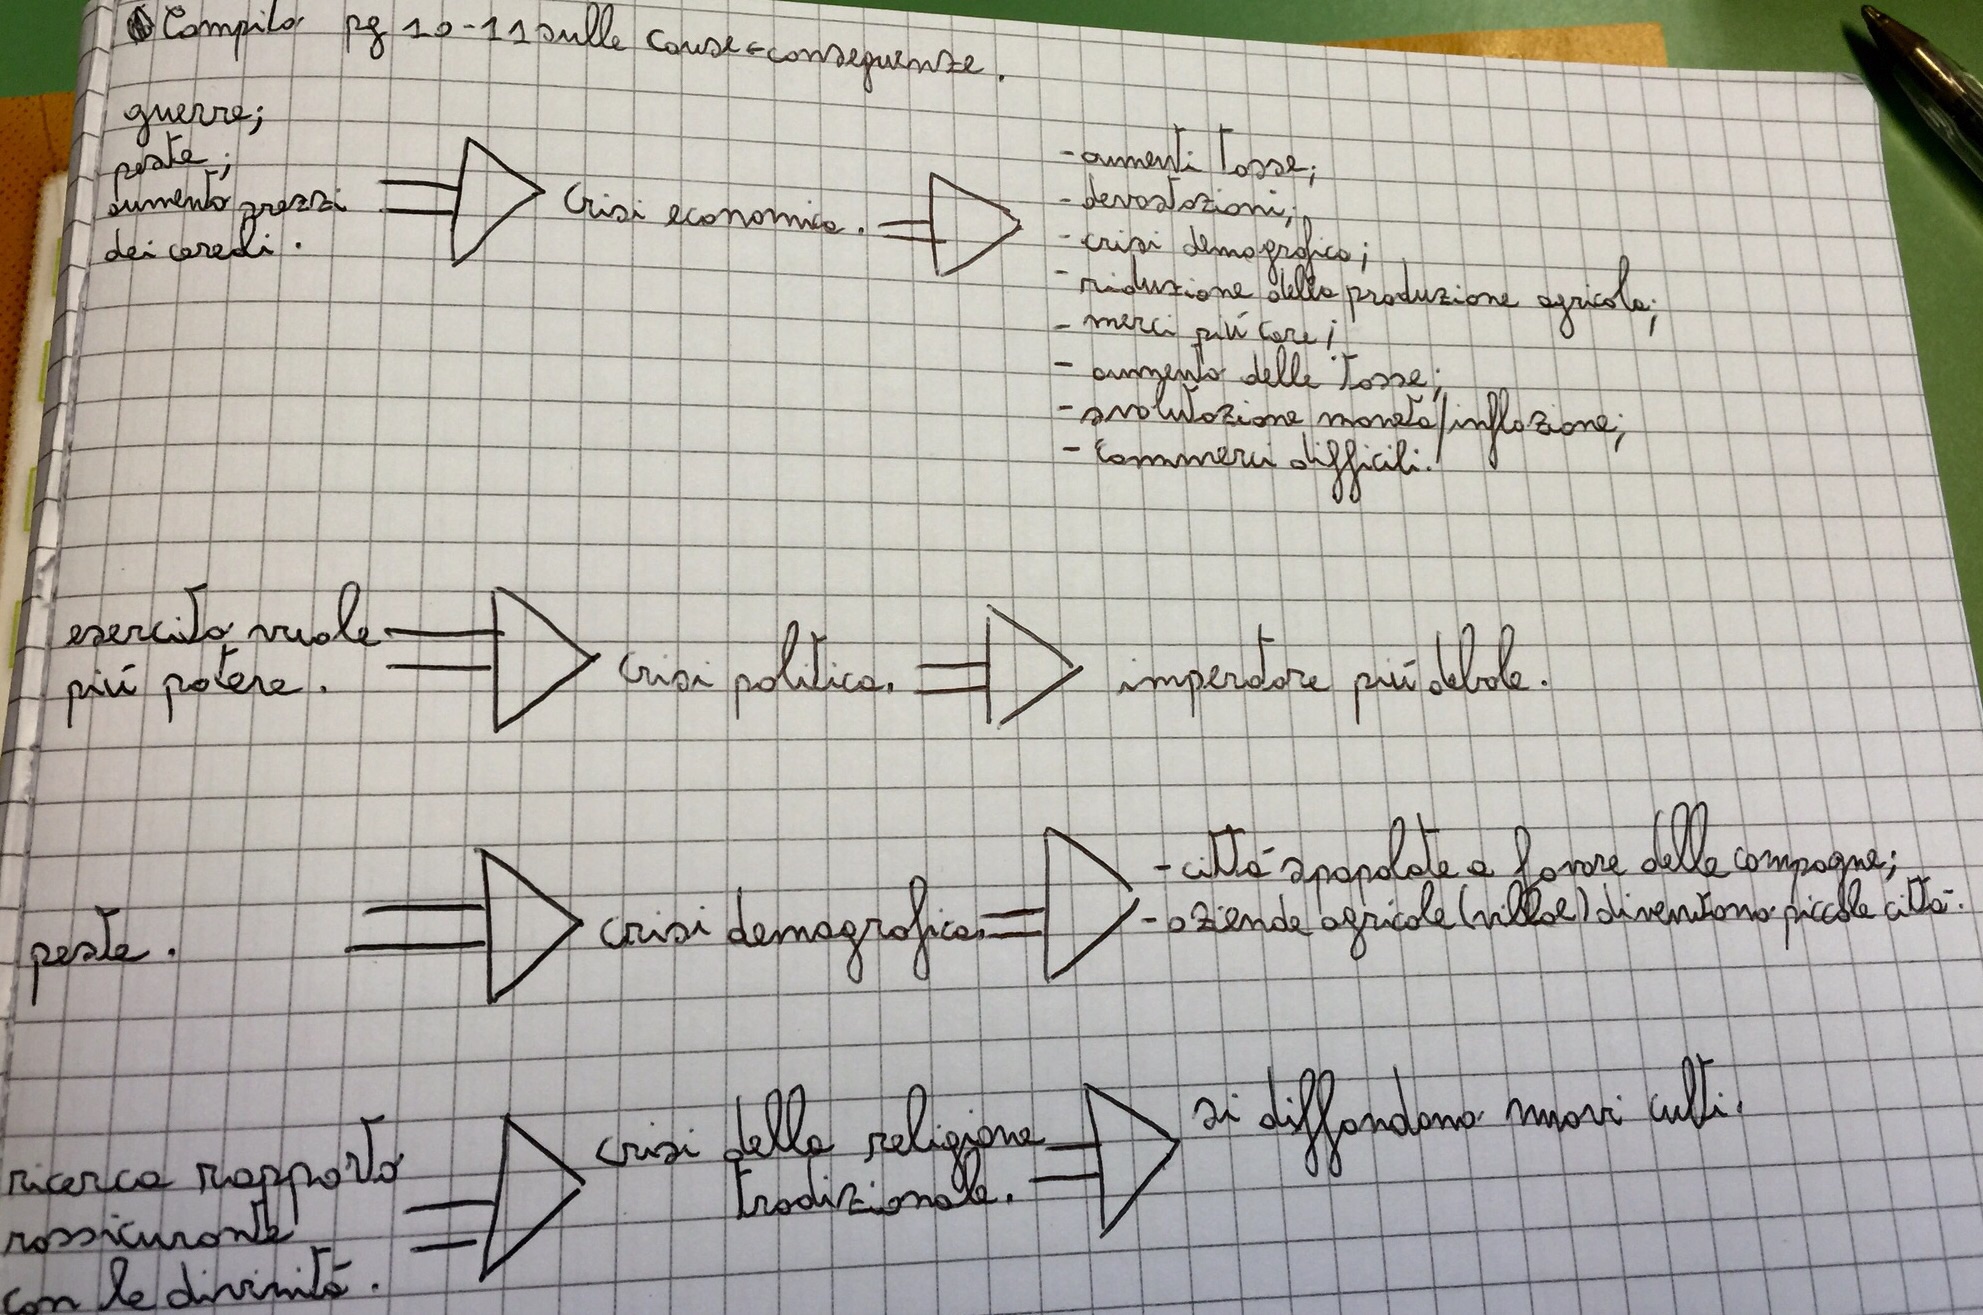 Compila pg 10-11 sulle cause-conseguenze.
guerre;
peste;
aumento prezzi
dei cereali.
crisi economica.
- aumenti tasse;
- devastazioni;
- crisi demografica;
- riduzione della produzione agricola;
- merci più care;
- aumento delle tasse;
- svalutazione moneta/inflazione;
- commerci difficili.
esercito vuole
più potere.
crisi politica.
imperatore più debole.
peste.
crisi demografica.
- città spopolate a favore delle campagne;
- aziende agricole (villae) diventano piccole città.
ricerca rapporto
rassicurante
con le divinità.
crisi della religione
tradizionale.
si diffondono nuovi culti.